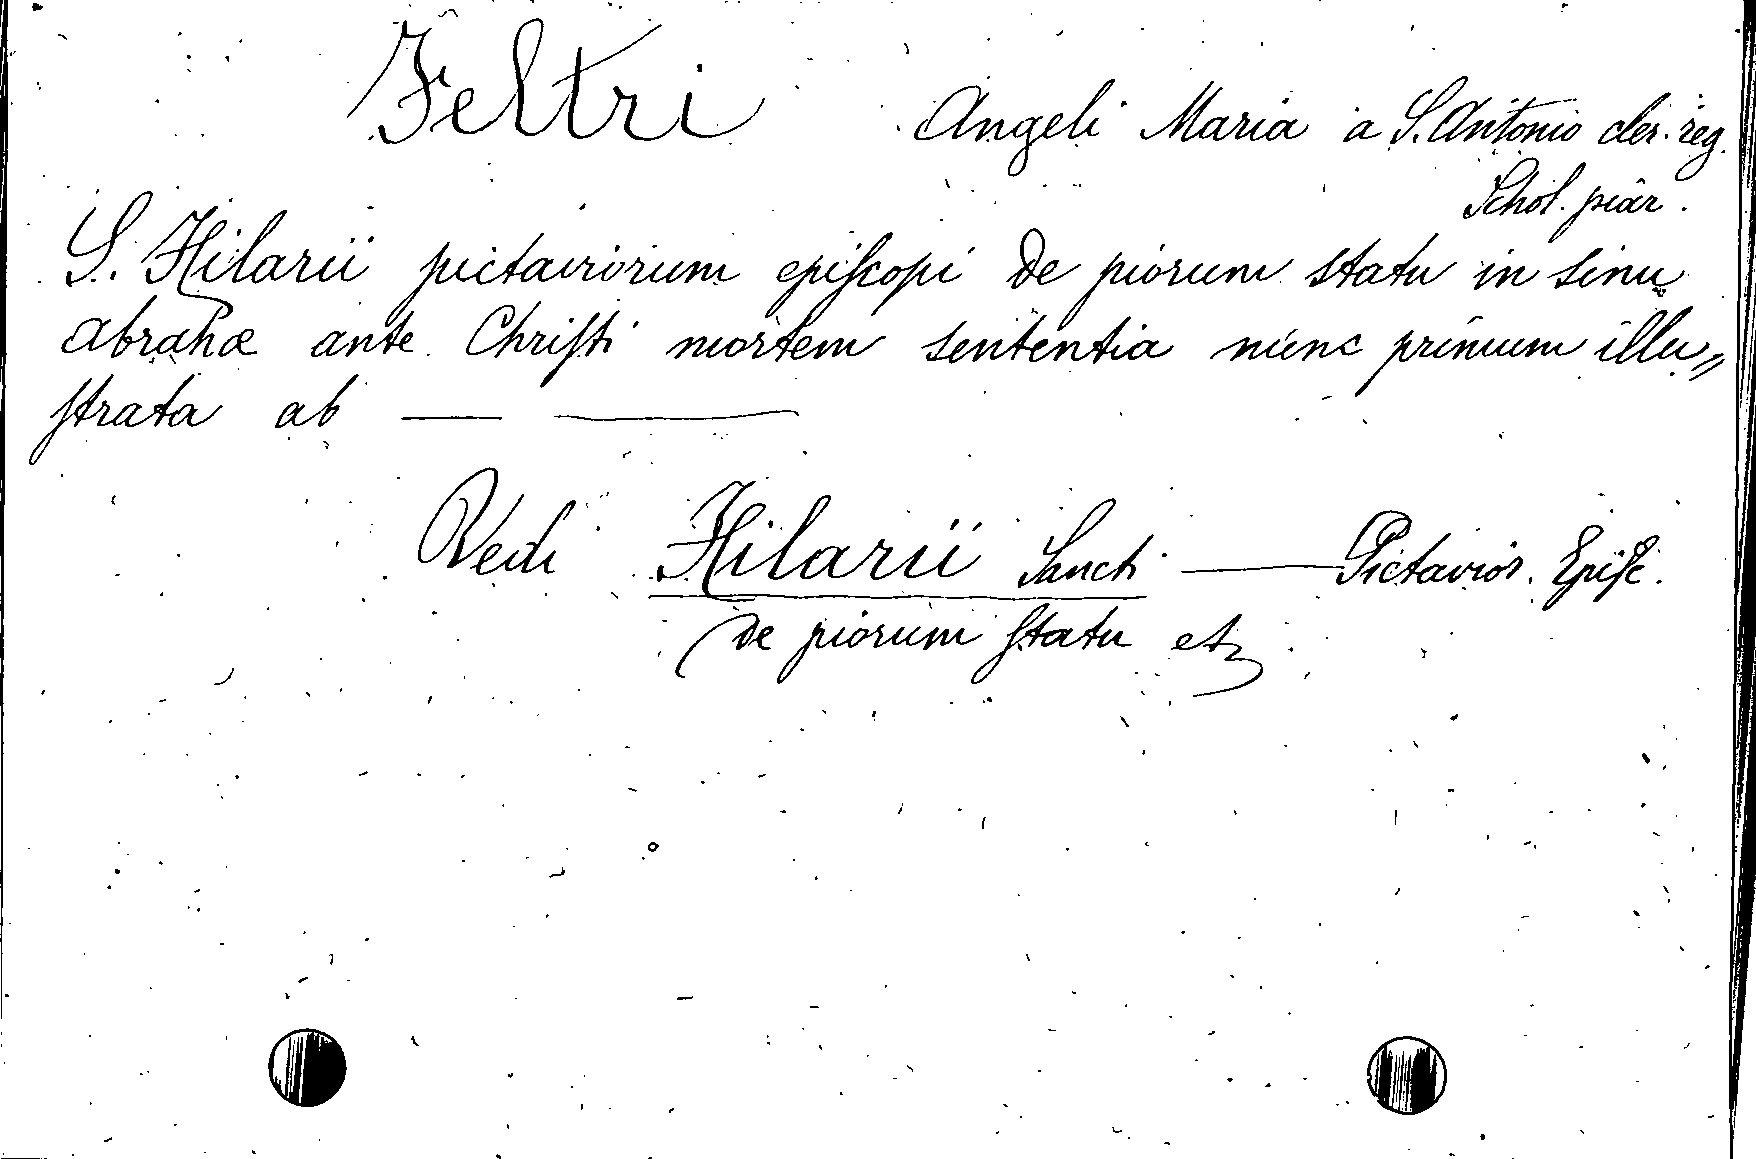 Feltri Angeli Maria a S. Antonio cler. reg.
Schol. piar.
S. Hilarii pictaviorum episcopi de piorum statu in sinu
Abrahæ ante Christi mortem sententia nunc primum illu„
strata ab — —
Vedi Hilarii Sancti — Pictavior. Episc.
de piorum statu etz